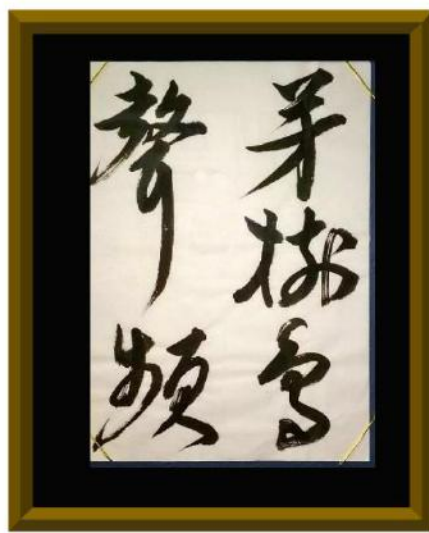 樹鳥
聲頻